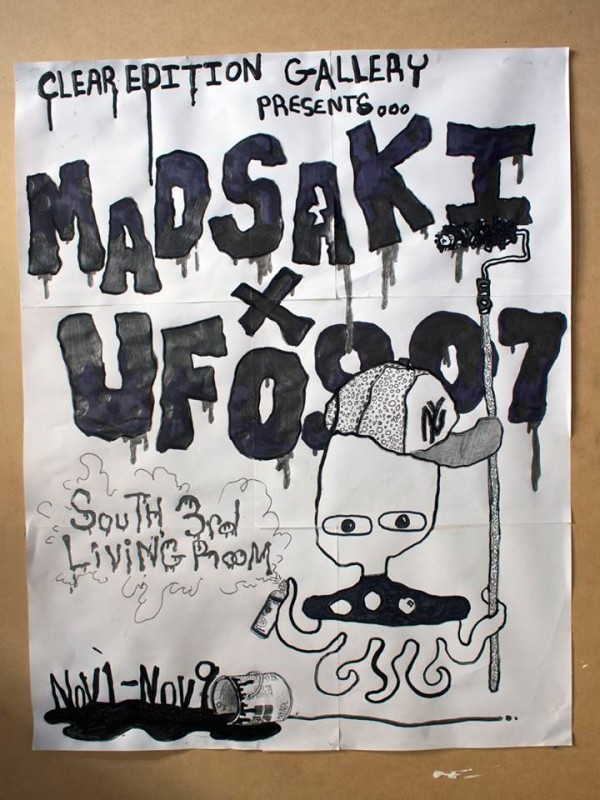 CLEAR EDITION GALLERY
PRESENTS...
MADSAKI
X
UFO907
NY
SOUTH 3rd
LIVING ROOM
NOV1-NOV9